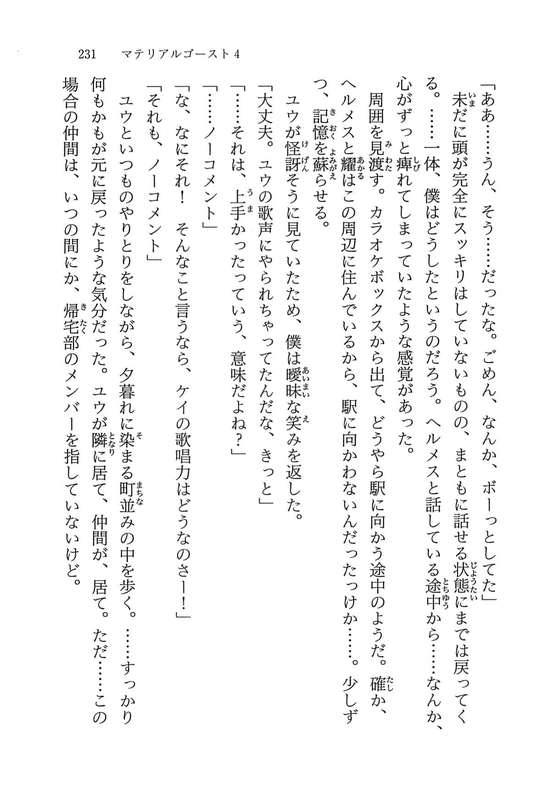 231 マテリアルゴースト4
「ああ……うん、そう……だったな。ごめん、なんか、ボーっとしてた」
未だに頭が完全にスッキリはしていないものの、まともに話せる状態にまでは戻ってく
る。……一体、僕はどうしたというのだろう。ヘルメスと話している途中から……なんか、
心がずっと痺れてしまっていたような感覚があった。
周囲を見渡す。カラオケボックスから出て、どうやら駅に向かう途中のようだ。確か、
ヘルメスと耀はこの周辺に住んでいるから、駅に向かわないんだったっけか……。少しず
つ、記憶を蘇らせる。
ユウが怪訝そうに見ていたため、僕は曖昧な笑みを返した。
「大丈夫。ユウの歌声にやられちゃってたんだな、きっと」
「……それは、上手かったっていう、意味だよね？」
「……ノーコメント」
「な、なにそれ！　そんなこと言うなら、ケイの歌唱力はどうなのさー！」
「それも、ノーコメント」
ユウといつものやりとりをしながら、夕暮れに染まる町並みの中を歩く。……すっかり
何もかもが元に戻ったような気分だった。ユウが隣に居て、仲間が、居て。ただ……この
場合の仲間は、いつの間にか、帰宅部のメンバーを指していないけど。